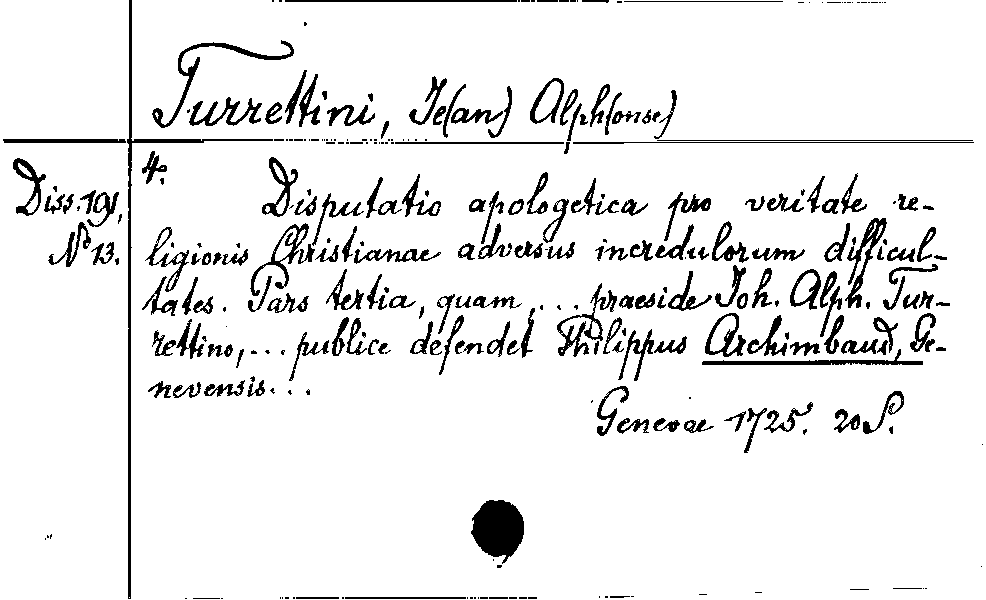 Turrettini, Je(an) Alph(onse)
4.
Diss. 191,
No 13.
Disputatio apologetica pro veritate re-
ligionis Christianae adversus incredulorum difficul-
tates. Pars tertia, quam,... praeside Joh. Alph. Tur-
rettino,... publice defendet Philippus Archimbaud, Ge-
nevensis...
Genevae 1725. 20 S.